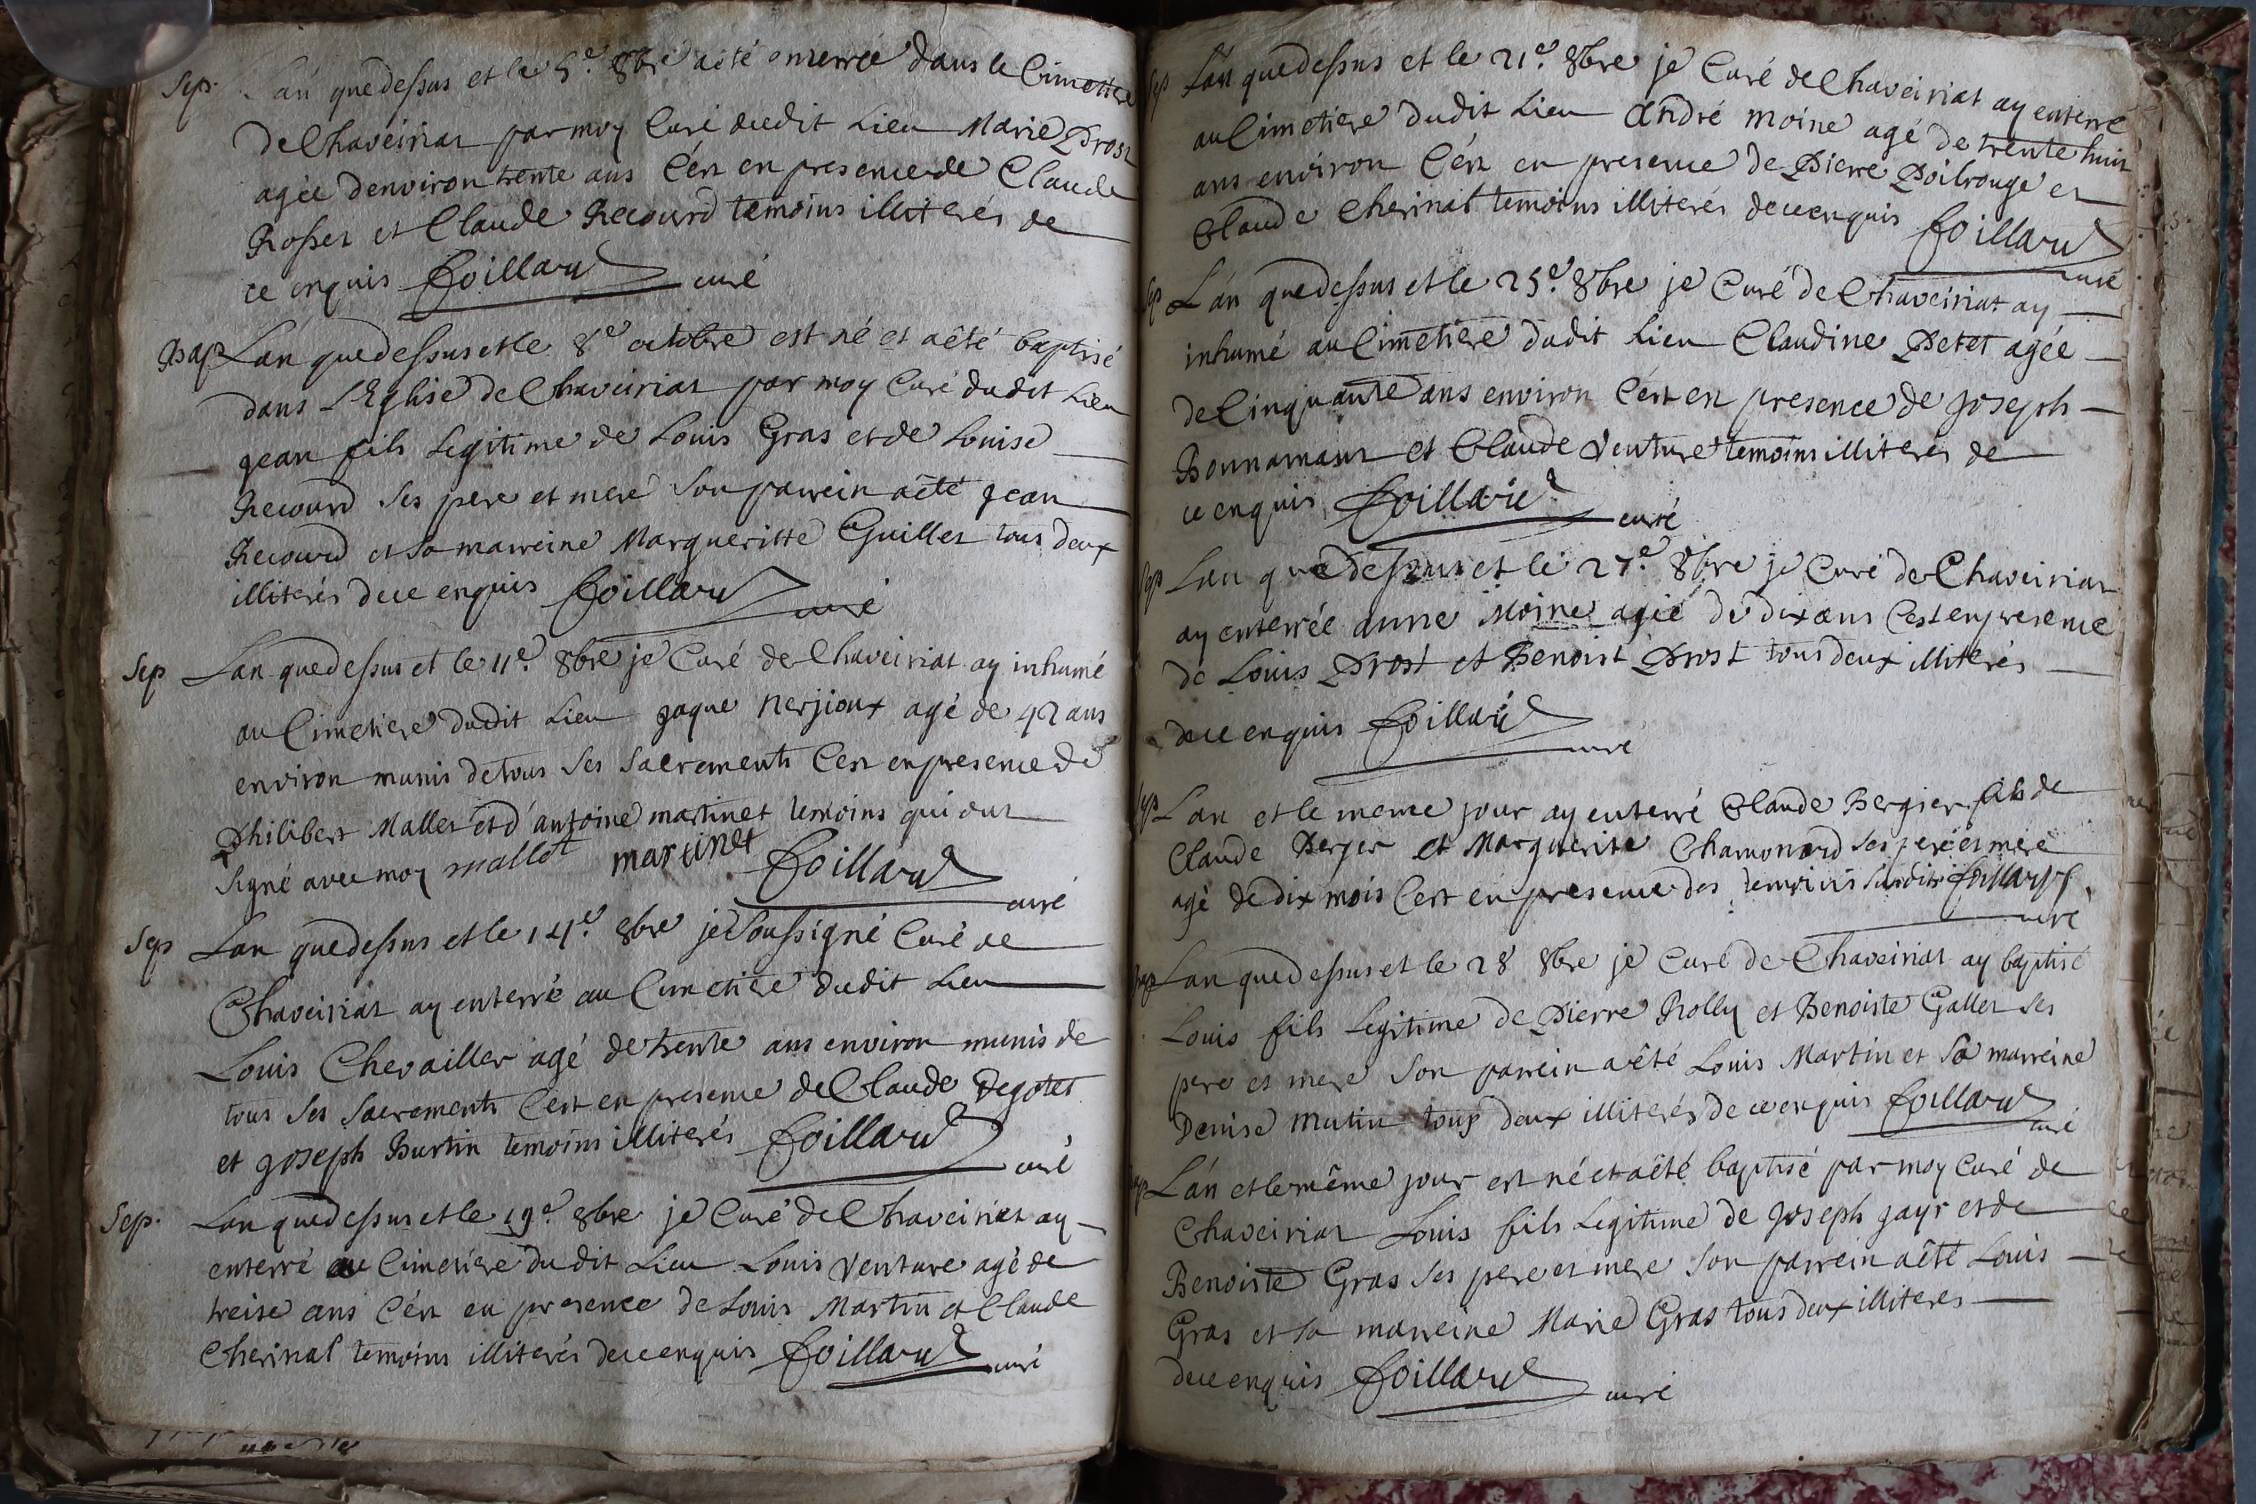 Sep. L'an que dessus et le 5e. 8bre a été enterrée dans le Cimettiere
de Chaveiriat par moy Curé dudit Lieu Marie Prost
agée d'environ trente ans C'ést en presence de Claude
Rosset et Claude Recourd temoins illiterés de
ce enquis Foillard curé
Bap L'an que dessus et le 8e octobre est né et a êté baptisé
dans L'Eglise de Chaveiriat par moy Curé dudit Lieu
jean fils Legitime de Louis Gras et de Louise
Recourd ses pere et mere son parrein a êté jean
Recourd et sa marreine Margueritte Guillet tous deux
illiterés de ce enquis Foillard curé
Sep L'an que dessus et le 11e. 8bre je Curé de Chaveiriat ay inhumé
au Cimetiere dudit Lieu jaque Nerjioux agé de 42 ans
environ munis de tous ses Sacrements C'est en presence de
Philibert Mallet et d'antoine martinet temoins qui ont
signé avec moy mallet martinet Foillard
curé
Sep L'an que dessus et le 14e. 8bre je Soussigné Curé de
Chaveiriat ay enterré au Cimetiere dudit Lieu
Louis Chevailler agé de trente ans environ munis de
tous ses Sacrements C'est en presence de Claude Degotet
et joseph Burtin temoins illiterés Foillard
curé
Sep. L'an que dessus et le 19e. 8bre je Curé de Chaveiriat ay
enterré au Cimetiere dudit Lieu Louis Venture agé de
treise ans C'ést en presence de Louis Martin et Claude
Cherinal temoins illiterés de ce enquis Foillard curé
Sep L'an que dessus et le 21e. 8bre je Curé de Chaveiriat ay enterré
au Cimetiere dudit Lieu André moine agé de trente huit
ans environ C'ést en presence de Pierre Poilrouge et
Claude Cherinal temoins illiterés de ce enquis Foillard
curé
Sep L'an que dessus et le 25e. 8bre je Curé de Chaveiriat ay
inhumé au Cimetiere dudit Lieu Claudine Petet agée
de Cinquante ans environ C'ést en presence de joseph
Bonnamour et Claude Venture temoins illiterés de
ce enquis Foillard curé
Sep L'an que dessus et le 27e. 8bre je Curé de Chaveiriat
ay enterrée anne Moine agée de dix ans C'est en presence
de Louis Prost et Benoist Prost tous deux illiterés
de ce enquis Foillard
curé
Sep L'an et le meme jour ay enterré Claude Bergier fils de
Claude Berger et Marguerite Chamonard ses pere et mere
agé de dix mois C'est en presence des temoins susdits Foillard
curé
Bap L'an que dessus et le 28 8bre je Curé de Chaveiriat ay baptisé
Louis fils Legitime de Pierre Rolly et Benoiste Gallet ses
pere et mere son parrein a êté Louis Martin et sa marreine
Denise Mutin tous deux illiterés de ce enquis Foillard
curé
Bap L'an et le même jour est né et a êté baptisé par moy Curé de
Chaveiriat Louis fils Legitime de joseph jayr et de
Benoiste Gras ses pere et mere son parrein a êté Louis
Gras et sa marreine Marie Gras tous deux illiteres
de ce enquis Foillard curé